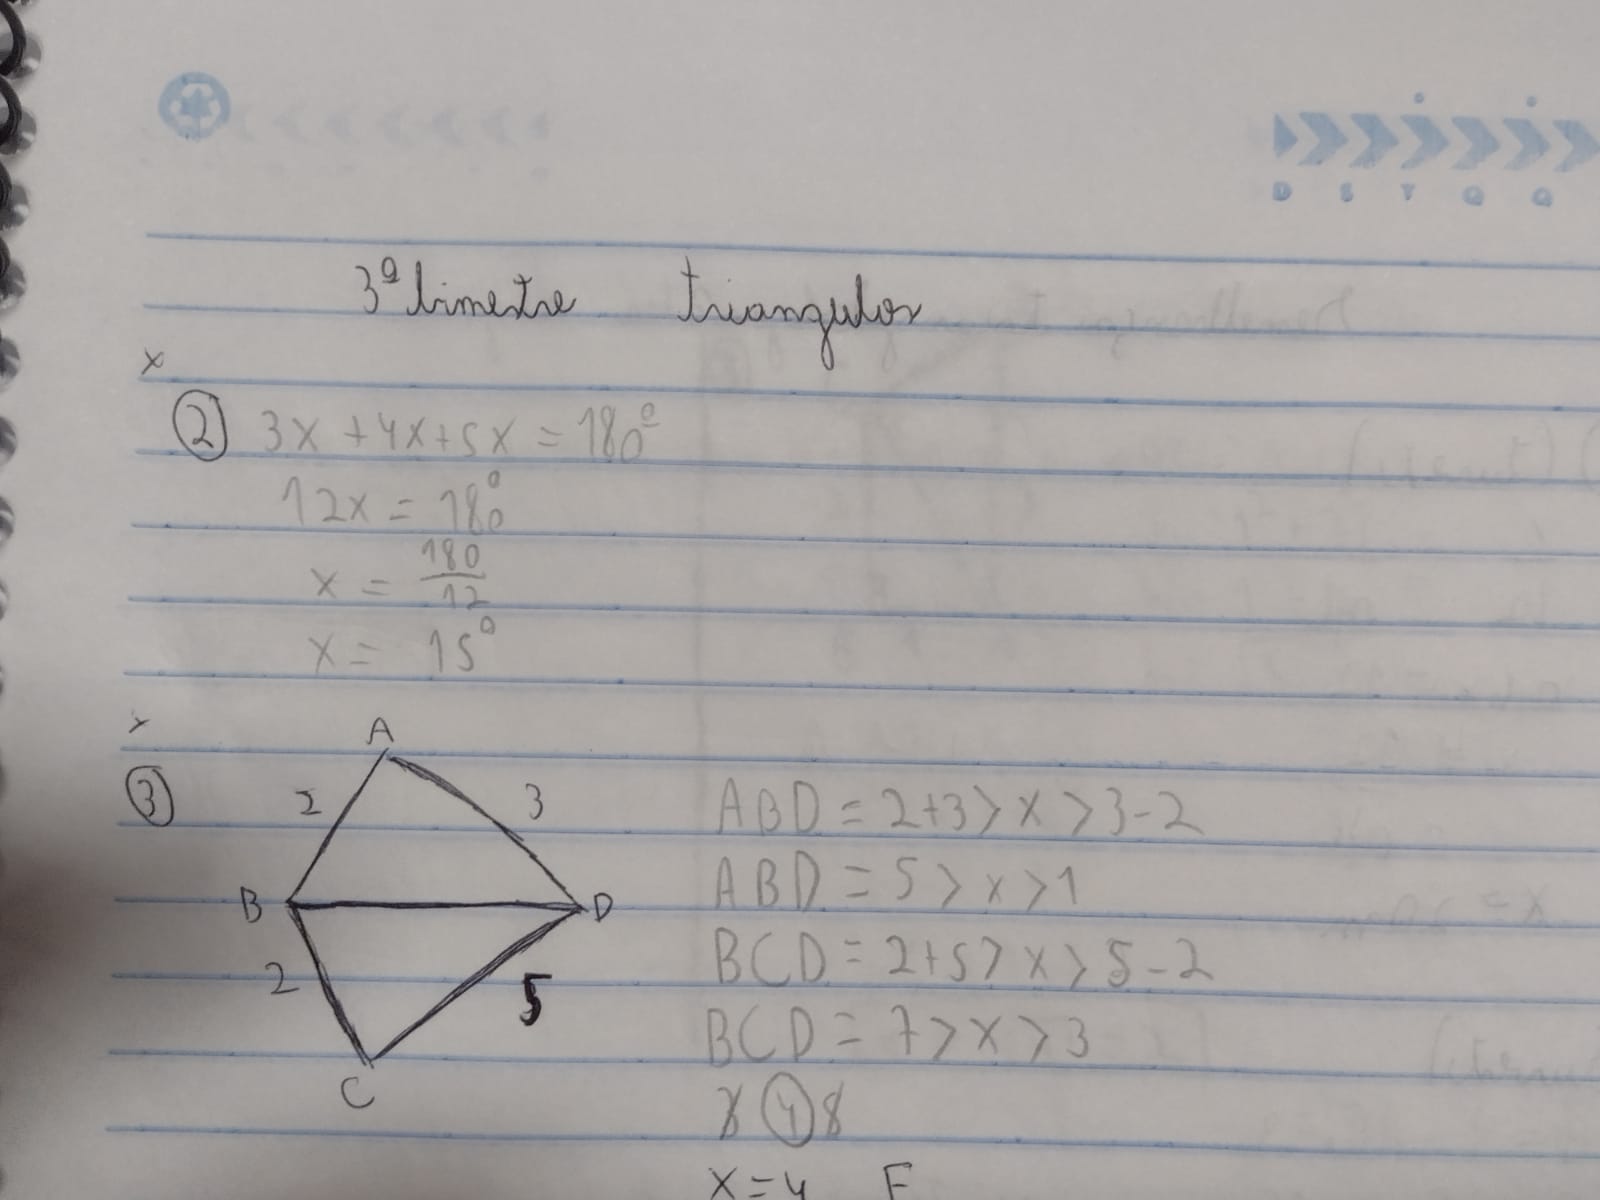 D S T Q Q
3º bimestre triangulos
x
② 3x + 4x + 5x = 180º
12x = 180°
x = 180/12
x = 15°
③
A
2 3
B D
2 5
C
ABD = 2+3 > x > 3-2
ABD = 5 > x > 1
BCD = 2+5 > x > 5-2
BCD = 7 > x > 3
④
x = 4